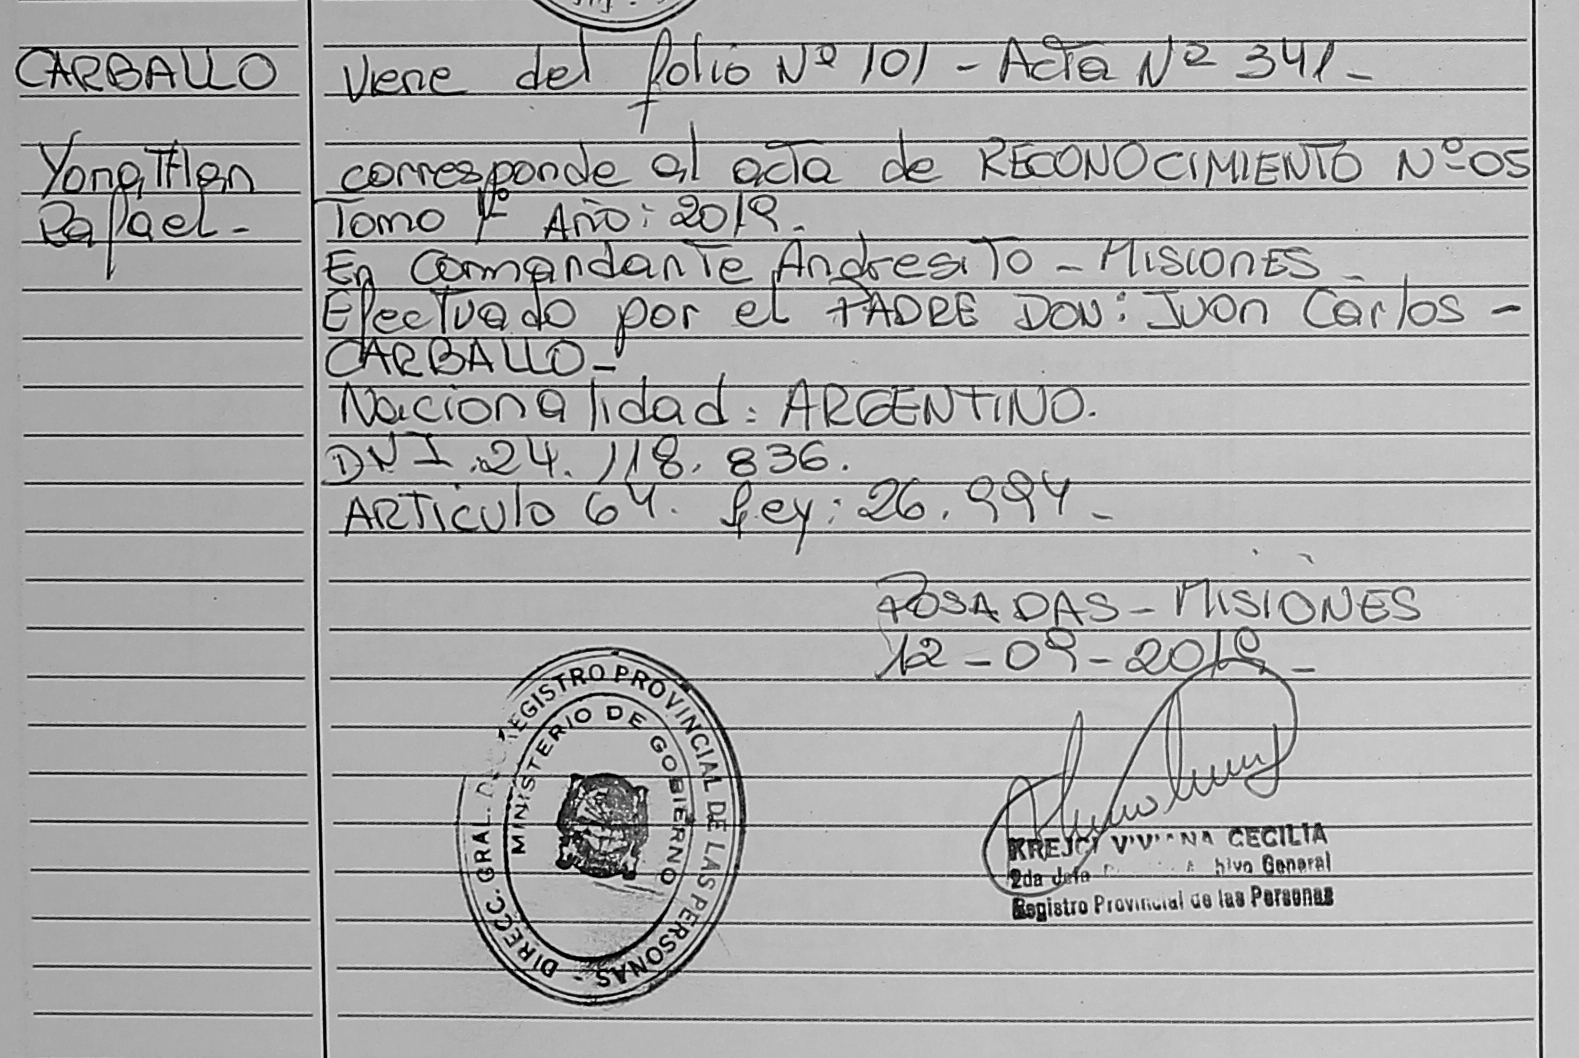 CARBALLO
Yonathan
Rafael-
Viene del folio Nº 101 - Acta Nº 341-
corresponde al acta de RECONOCIMIENTO Nº 05
Tomo 1º Año: 2019.
En Comandante Andresito - MISIONES -
Efectuado por el PADRE DON: Juan Carlos -
CARBALLO-
Nacionalidad: ARGENTINO.
DNI. 24. 118. 836.
ARTICULO 64. Ley: 26.994-
POSADAS - MISIONES
12-09-2019-
DIRECC. GRAL. DEL REGISTRO PROVINCIAL DE LAS PERSONAS -
MINISTERIO DE GOBIERNO
KREJCI VIVIANA CECILIA
2da Jefa General
Registro Provincial de las Personas